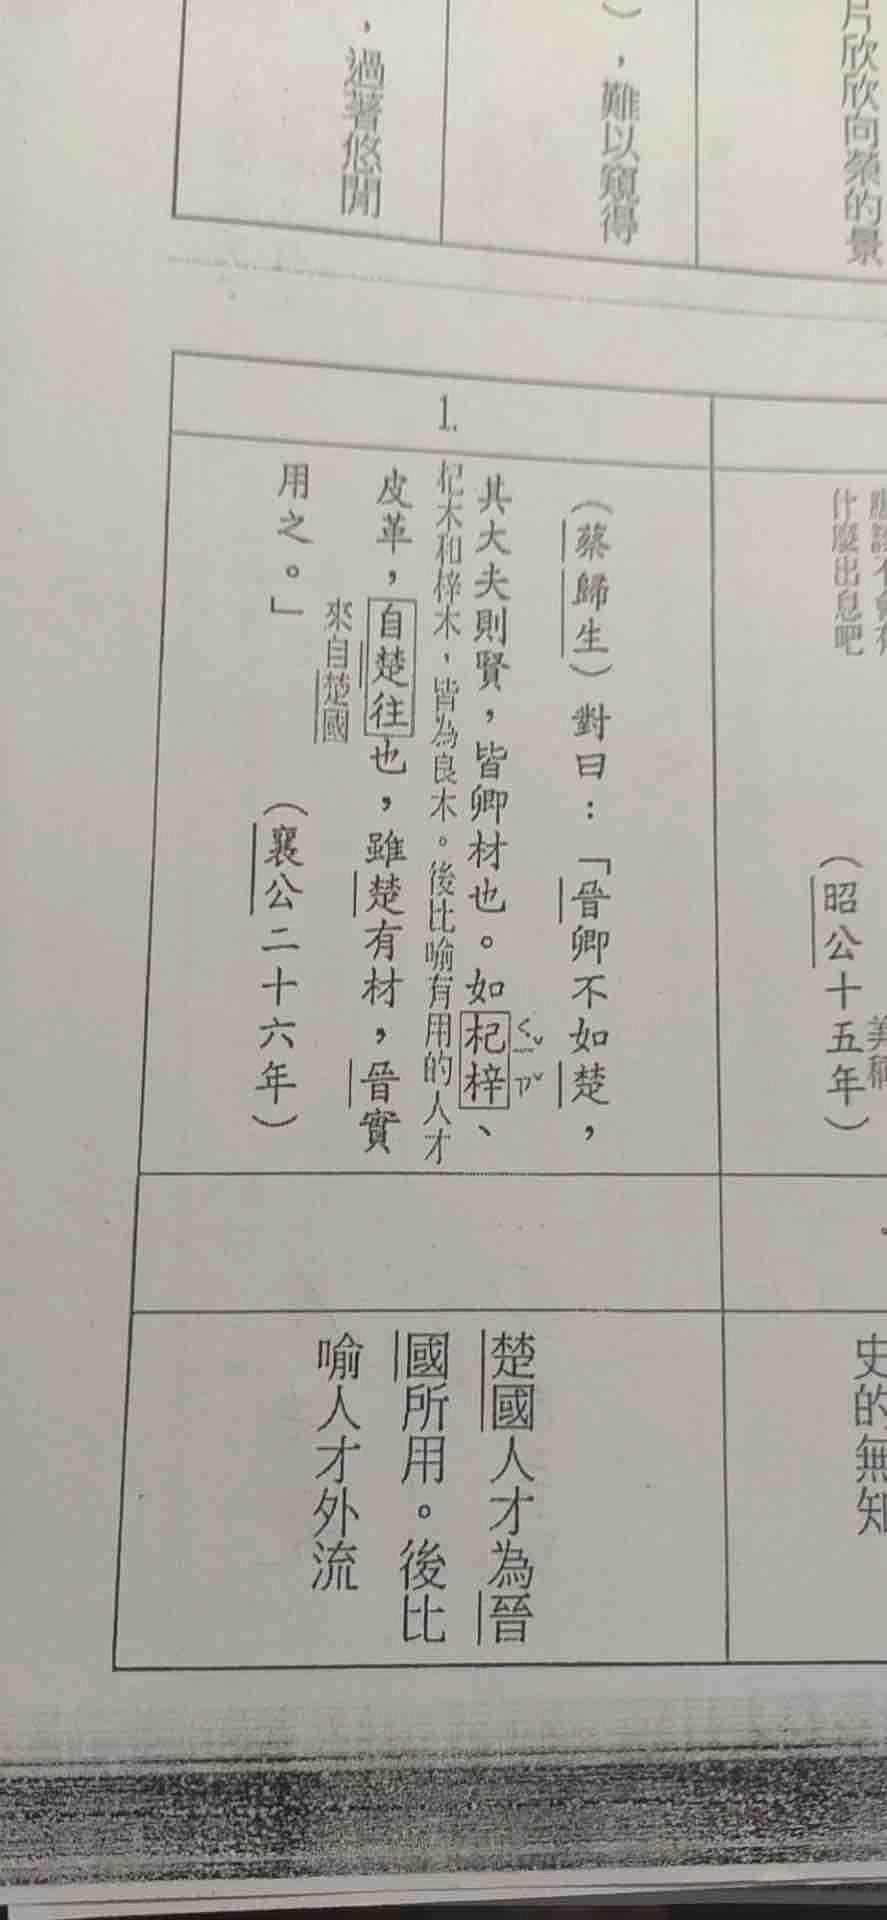 片欣欣向榮的景
），難以窺得
，過著悠閒
應該不會有
什麼出息吧
美稱
（昭公十五年）
史的無知
1.
（蔡歸生）對曰：「晉卿不如楚，
其大夫則賢，皆卿材也。如杞梓、
ㄑㄧˇ ㄗˇ
杞木和梓木，皆為良木。後比喻有用的人才
皮革，自楚往也，雖楚有材，晉實
來自楚國
用之。」
（襄公二十六年）
楚國人才為晉
國所用。後比
喻人才外流